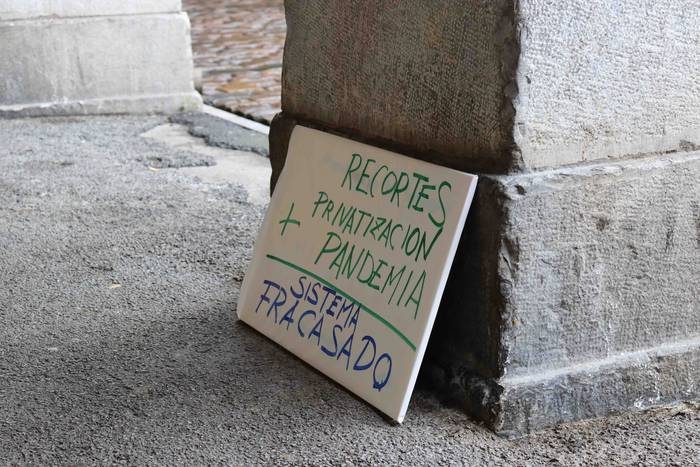 RECORTES
PRIVATIZACION
+ PANDEMIA
SISTEMA
FRACASADO